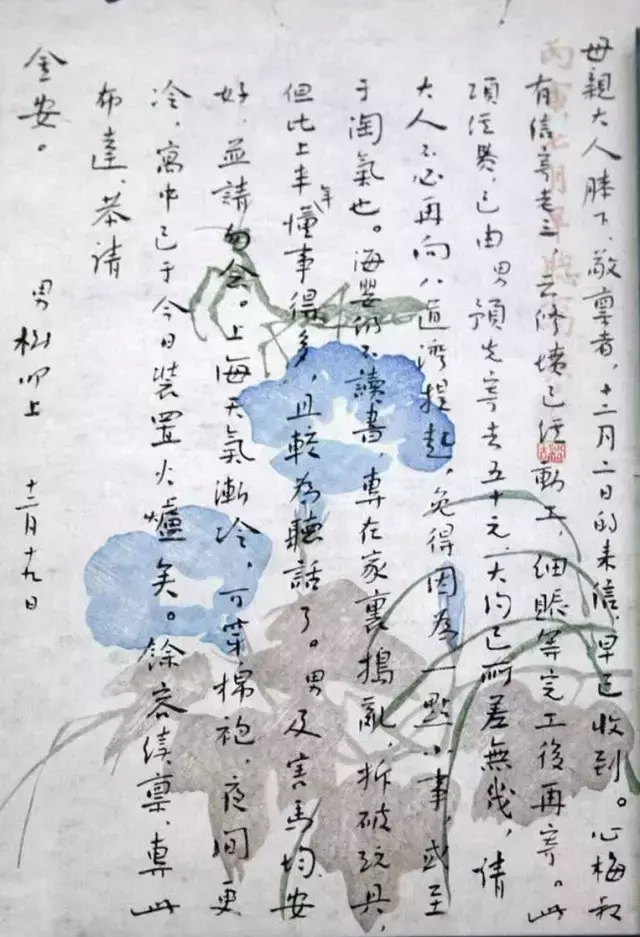 母親大人膝下、敬稟者，十二月二日的来信，早已收到。心梅叔
有信寄老三，云修墳已經動工，細賬等完工後再寄。此
項經費，已由男預先寄去五十元，大約已所差無幾，請
大人不必再向八道灣提起，免得因為一點小事，或至
于淘氣也。海嬰仍不讀書，專在家裏搗亂，拆破玩具，
但比上半年懂事得多，且較為聽話了。男及害馬均安
好，並請勿念。上海天氣漸冷，可穿棉袍，夜間更
冷，寓中已于今日裝置火爐矣。餘容續稟，專此
布達、恭請
金安。
男樹叩上 十二月十九日
丙寅七月